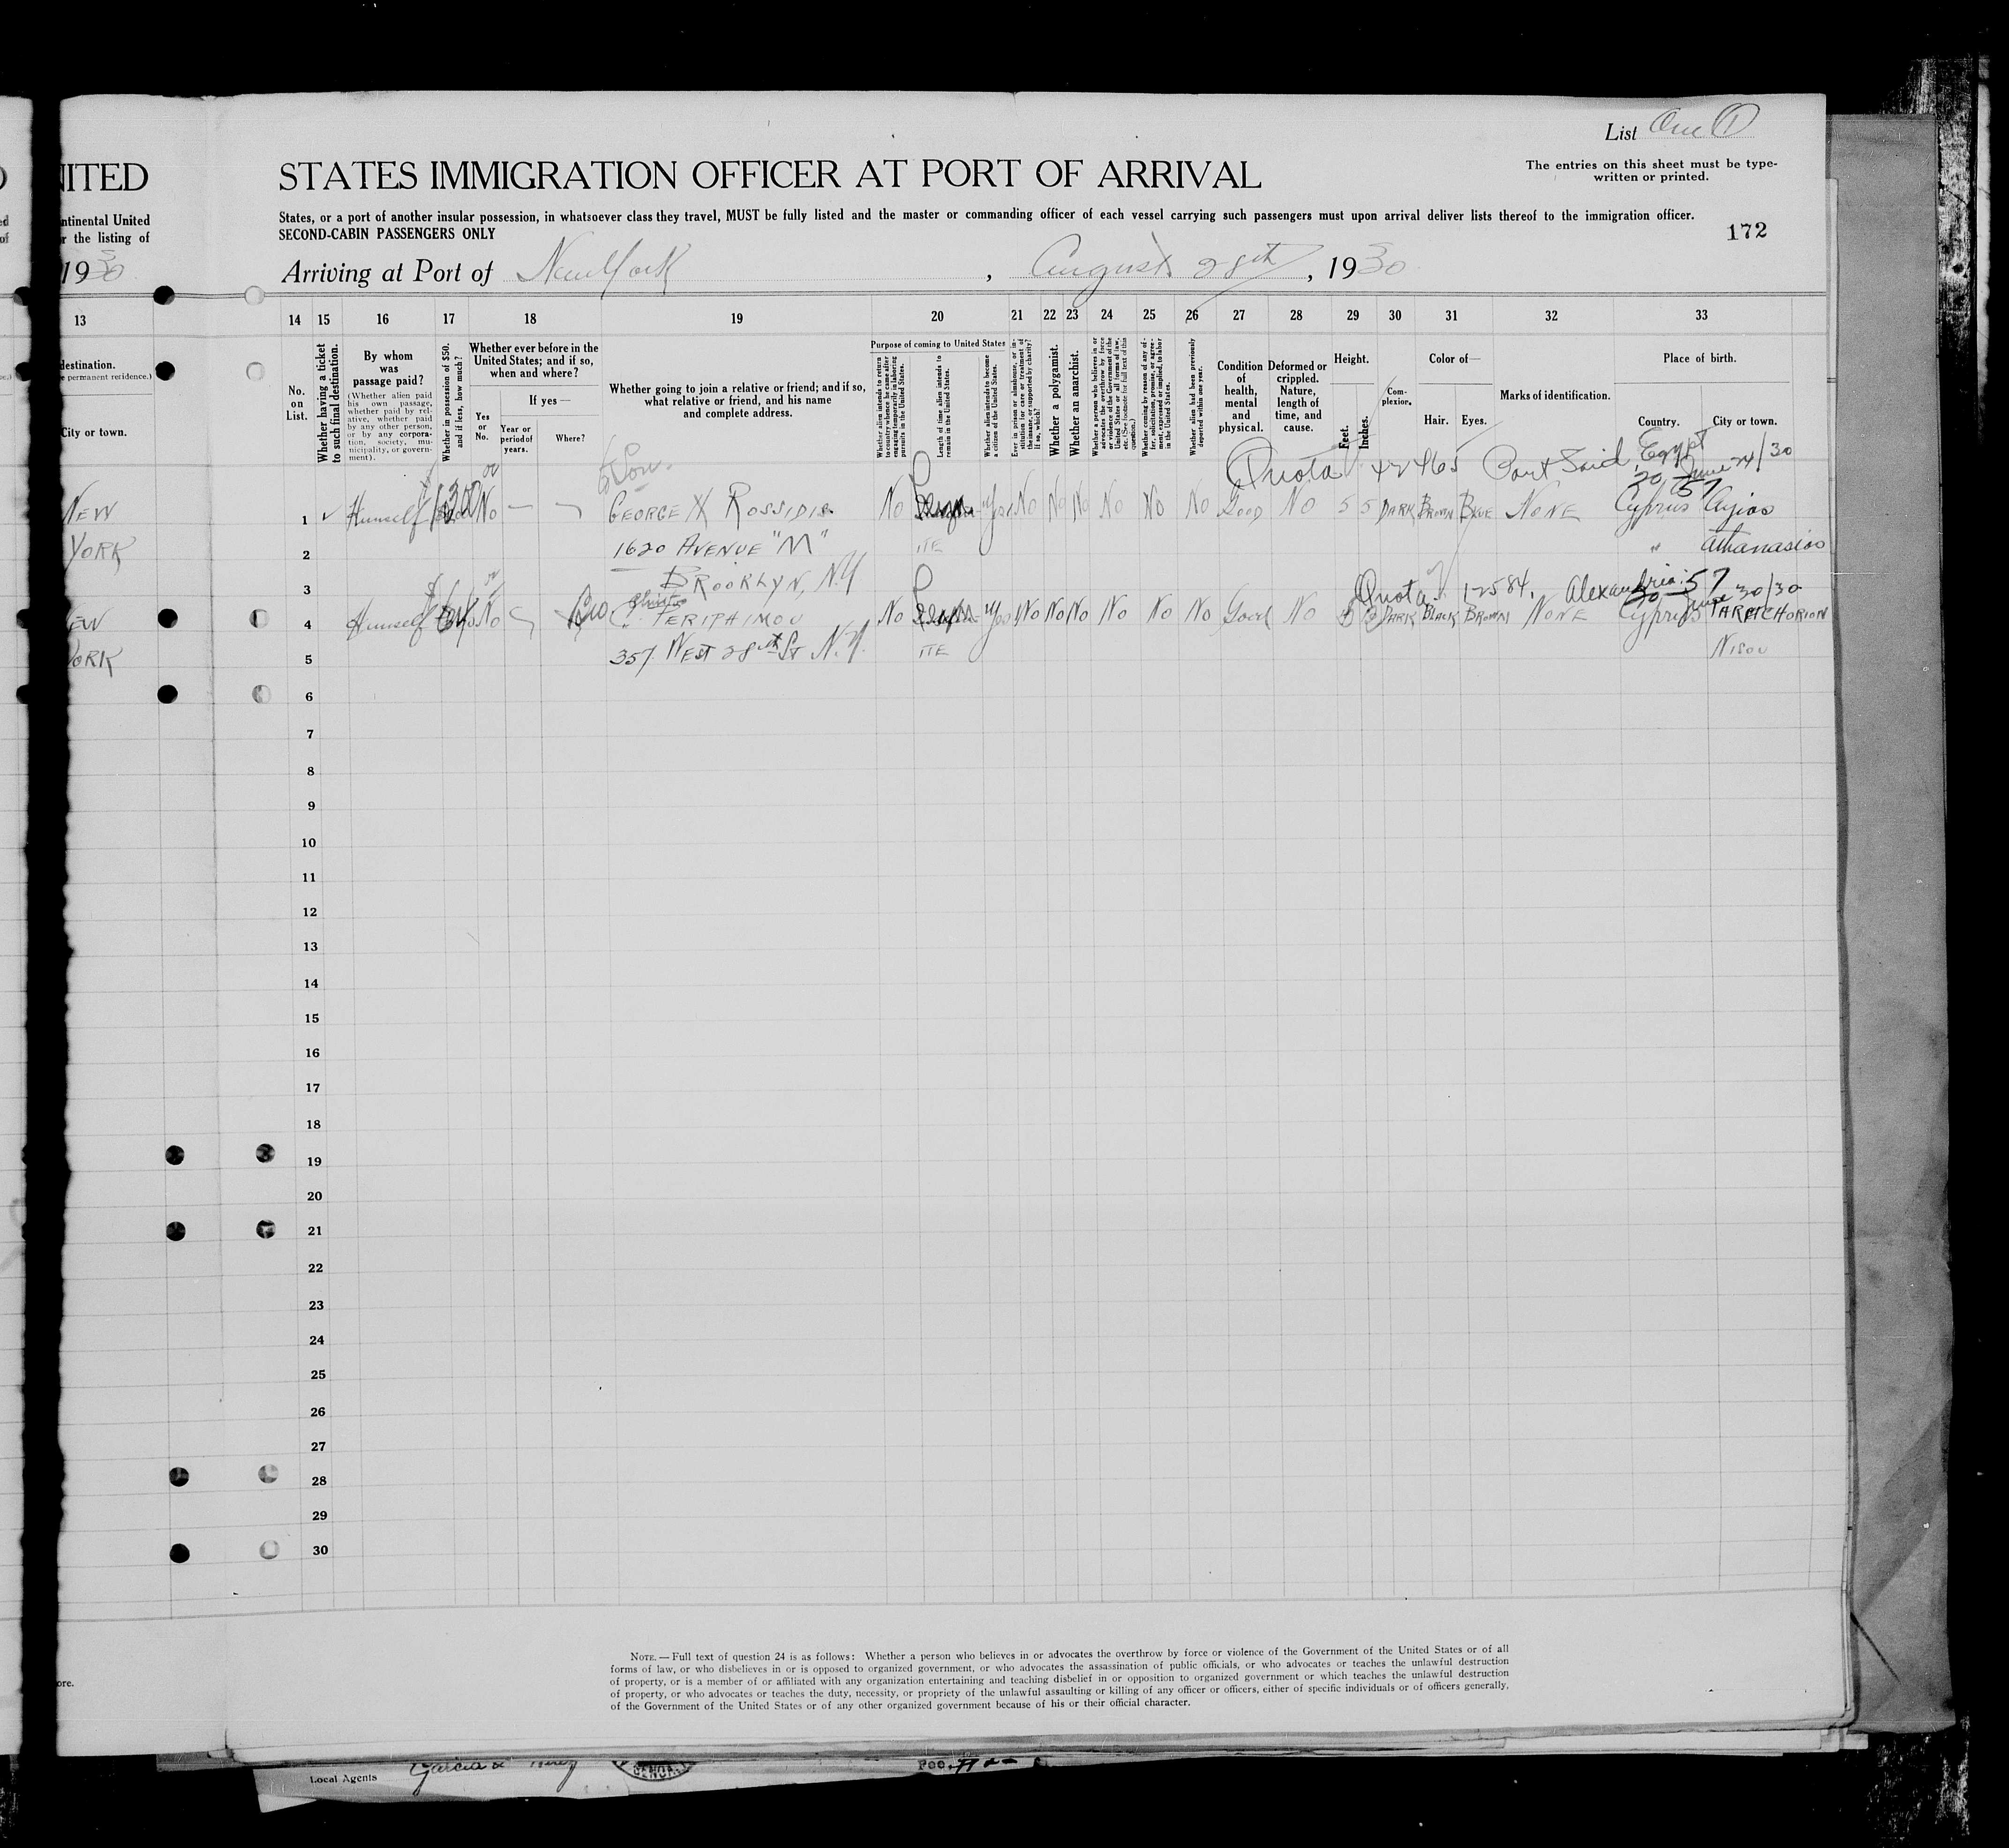 List One (1)
NITED
STATES IMMIGRATION OFFICER AT PORT OF ARRIVAL
The entries on this sheet must be type-
written or printed.
ntinental United
r the listing of
States, or a port of another insular possession, in whatsoever class they travel, MUST be fully listed and the master or commanding officer of each vessel carrying such passengers must upon arrival deliver lists thereof to the immigration officer.
SECOND-CABIN PASSENGERS ONLY
172
1930
Arriving at Port of New York, August 28th, 1930
13 14 15 16 17 18 19 20 21 22 23 24 25 26 27 28 29 30 31 32 33
destination.
e permanent residence.)
City or town.
No.
on
List.
Whether having a ticket
to such final destination.
By whom
was
passage paid?
(Whether alien paid
his own passage,
whether paid by rel-
ative, whether paid
by any other person,
or by any corpora-
tion, society, mu-
nicipality, or govern-
ment).
Whether in possession of $50,
and if less, how much?
Whether ever before in the
United States; and if so,
when and where?
Yes
or
No.
If yes—
Year or
period of
years.
Where?
Whether going to join a relative or friend; and if so,
what relative or friend, and his name
and complete address.
Purpose of coming to United States
Whether alien intends to return
to country whence he came after
engaging temporarily in laboring
pursuits in the United States.
Length of time alien intends to
remain in the United States.
Whether alien intends to become
a citizen of the United States.
Ever in prison or almshouse, or in-
stitution for care or treatment of
the insane, or supported by charity?
If so, which?
Whether a polygamist.
Whether an anarchist.
Whether a person who believes in or
advocates the overthrow by force
or violence of the Government of the
United States or all forms of law,
etc. (See footnote for full text of this
question.)
Whether coming by reason of any of-
fer, solicitation, promise, or agree-
ment, expressed or implied, to labor
in the United States.
Whether alien had been previously
deported within one year.
Condition
of
health,
mental
and
physical.
Deformed or
crippled.
Nature,
length of
time, and
cause.
Height.
Feet.
Inches.
Com-
plexion.
Color of—
Hair. Eyes.
Marks of identification.
Place of birth.
Country. City or town.
Quota 42465 Port Said, Egypt
June 24/30
NEW 1 Himself No GEORGE X ROSSIDIS No Yes No No No No No No GOOD NO 5 5 DARK BROWN BLUE NONE Cyprus Ayios
YORK 2 1620 AVENUE "M" ITE " Athanasios
3 BROOKLYN, N.Y
Quota 12584. Alexandria: June 30/30
EW 4 Himself No No Yes No No No No No No Good No DARK BLACK BROWN NONE Cyprus
YORK 5 357 WEST 28th St N.Y. ITE NISOU
6
7
8
9
10
11
12
13
14
15
16
17
18
19
20
21
22
23
24
25
26
27
28
29
30
NOTE.—Full text of question 24 is as follows: Whether a person who believes in or advocates the overthrow by force or violence of the Government of the United States or of all
forms of law, or who disbelieves in or is opposed to organized government, or who advocates the assassination of public officials, or who advocates or teaches the unlawful destruction
of property, or is a member of or affiliated with any organization entertaining and teaching disbelief in or opposition to organized government or which teaches the unlawful destruction
of property, or who advocates or teaches the duty, necessity, or propriety of the unlawful assaulting or killing of any officer or officers, either of specific individuals or of officers generally,
of the Government of the United States or of any other organized government because of his or their official character.
ore.
Local Agents
GENOA
Fee